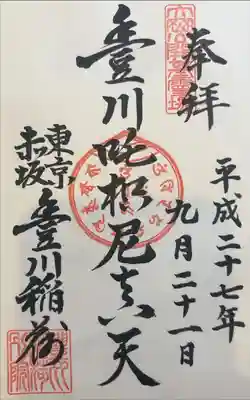 奉拝
平成二十七年
九月二十一日
豊川吒枳尼真天
東京
赤坂
豊川稲荷